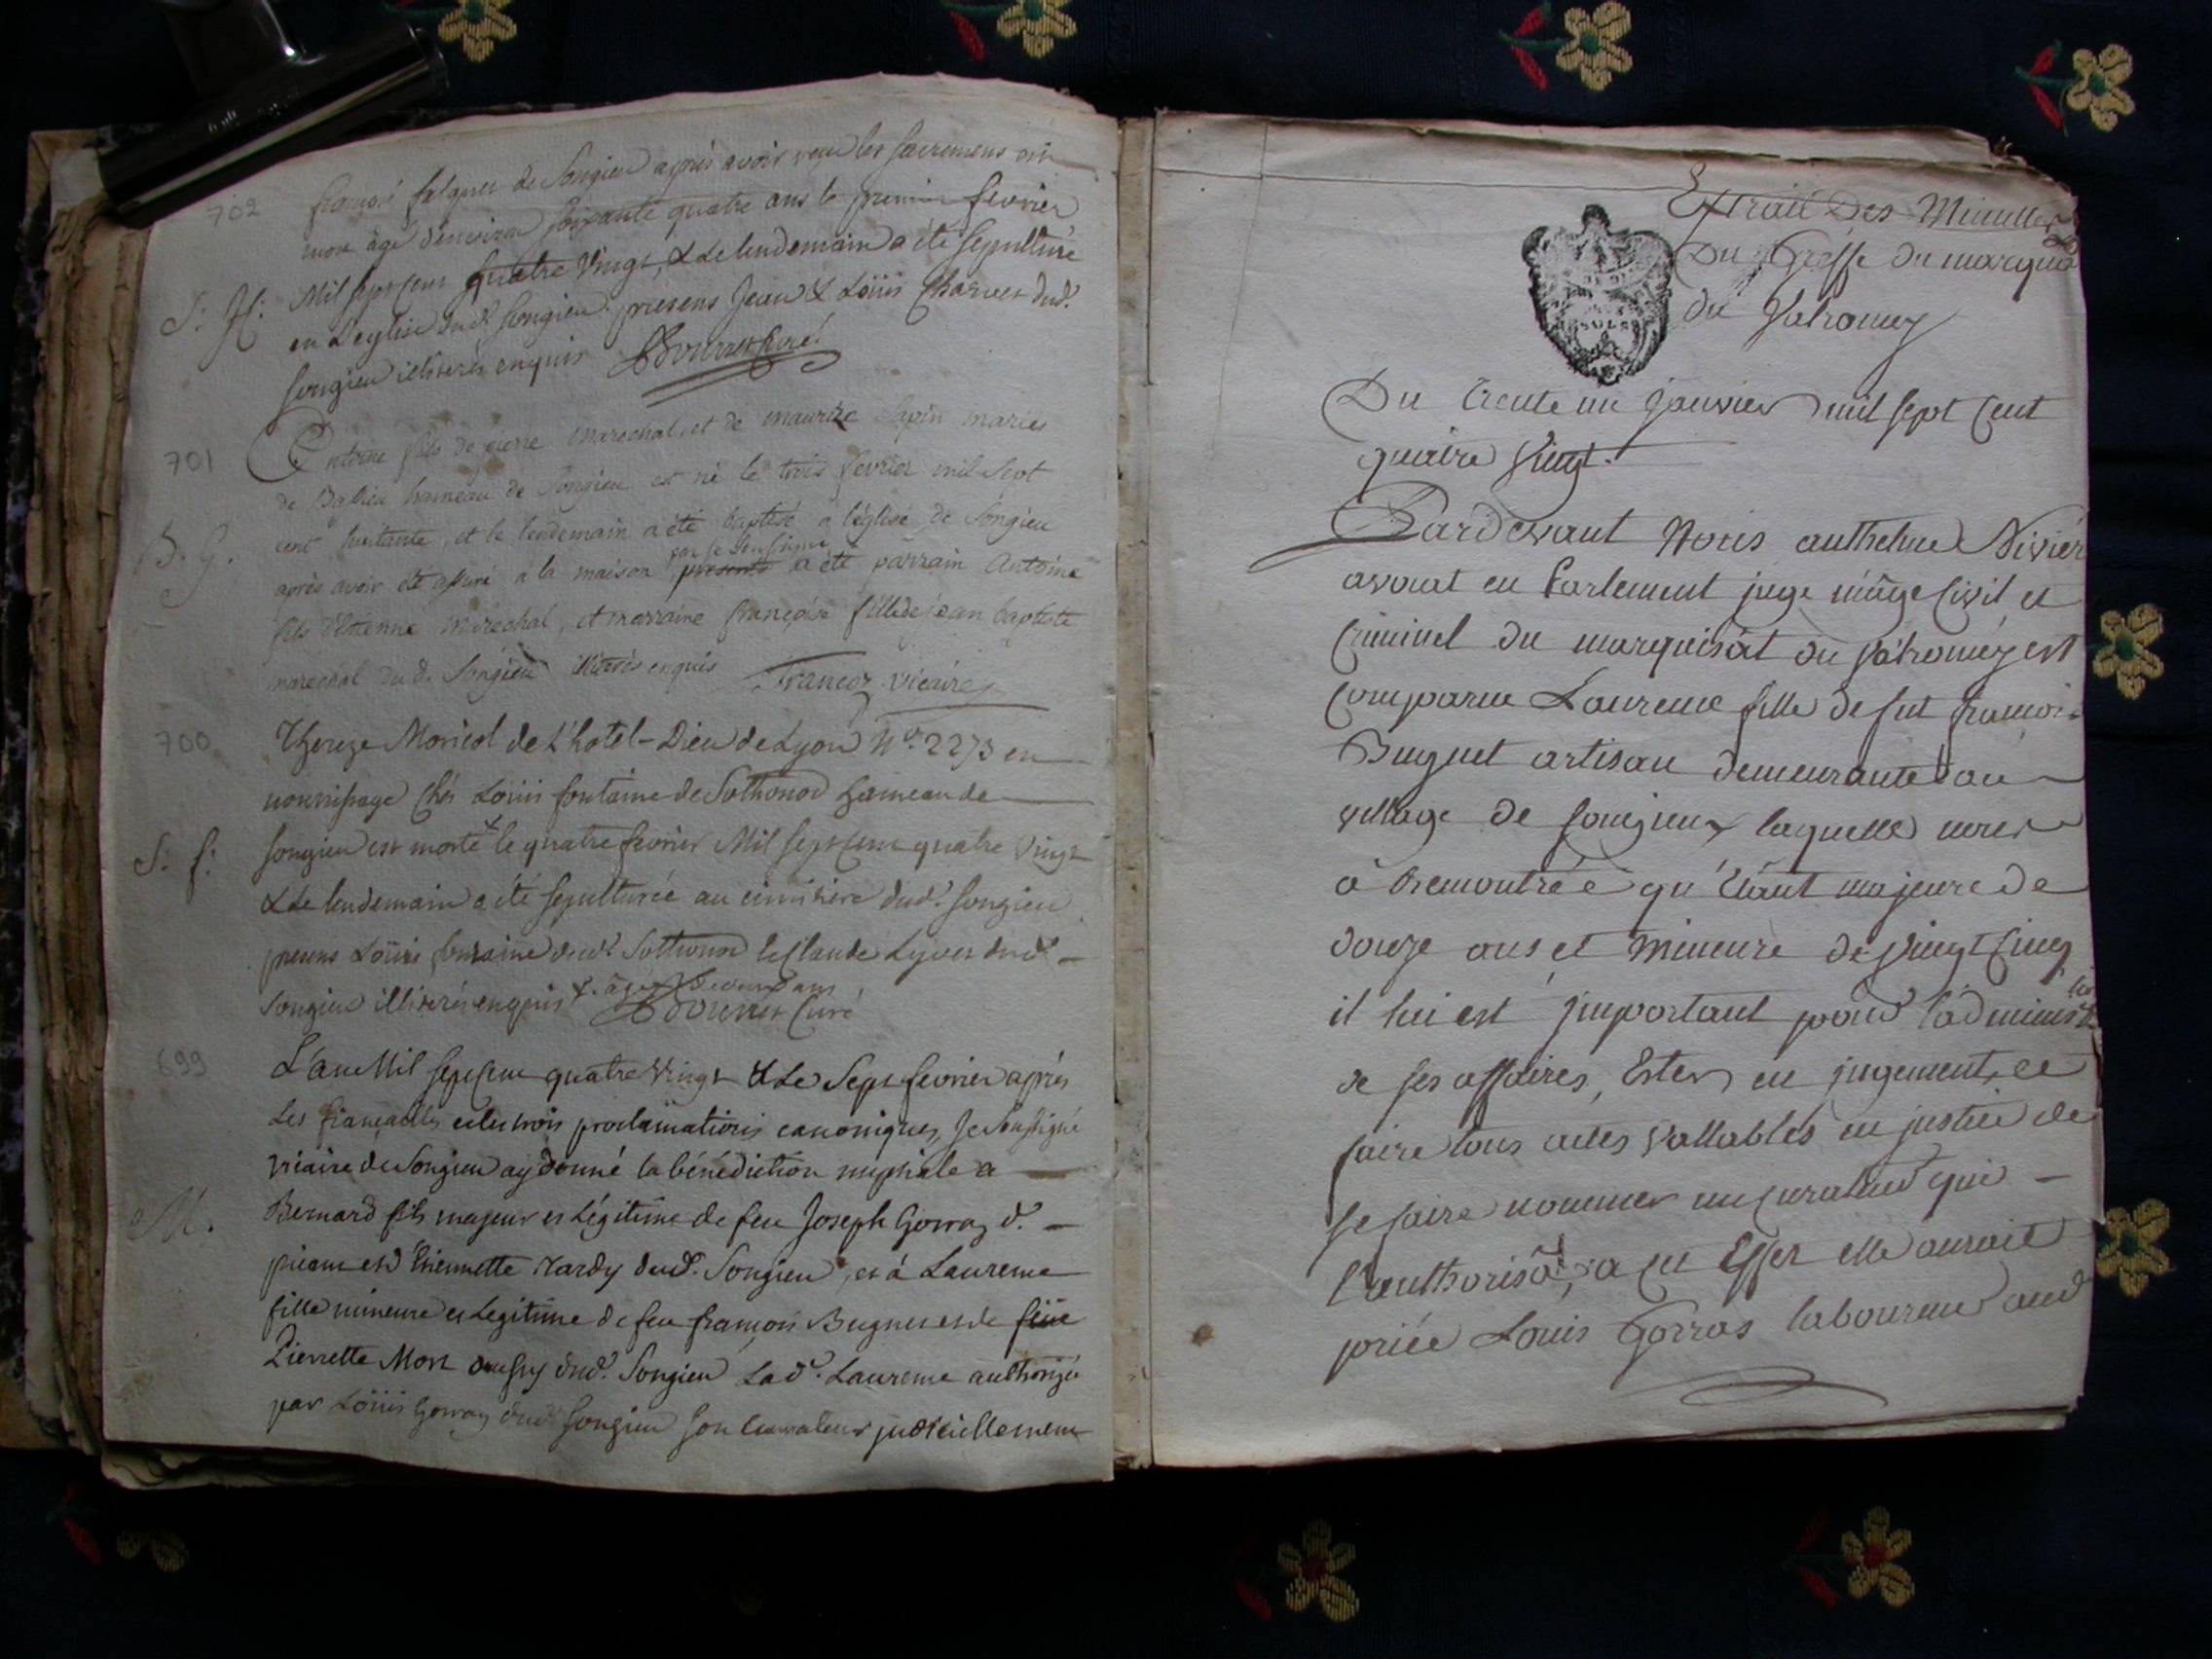 702
françois falquet de Songieu après avoir reçu les sacremens est
mort âgé d'environ soixante quatre ans le premier fevrier
S: H: Mil sept cent quatre vingt, & le lendemain a été sepulturé
en L'eglise dud. Songieu. presens Jean & Loüis Charvet dud.
songieu illiterés enquis Bouvret Curé
701
Antoine fils de pierre marechal, et de maurize Lapin mariés
de Bassieu hameau de Songieu est né le trois fevrier mil sept
B. G. cent huitante, et le lendemain a été baptisé a l'église de Songieu
par le soussigné
après avoir été assuré à la maison presents a été parrain Antoine
fils d'Etienne maréchal, et marraine françoise fille de jean baptiste
marechal du d. Songieu illiterés enquis Francoz vicaire
700
Thereze Moricol de L'hotel-Dieu de Lyon N.° 2273 en
nourrissage chés Loüis fontaine de Sothonod hameau de
S: f: songieu est morte le quatre fevrier Mil sept cent quatre vingt
& le lendemain a été sepulturée au cimitiere dud. songieu
presens Loüis fontaine dud. Sothonod & Claude Lyvet dud.
songieu illiterés enquis
Bouvret Curé
699
L'an Mil sept cent quatre vingt & Le Sept fevrier après
Les fiançailles et les trois proclamations canoniques, Je soussigné
vicaire de Songieu ay donné la bénédiction nuptiale a
M. Bernard fils majeur et Légitime de feu Joseph Gorraz d.
et d'Etiennette Tardy dud. Songieu, et à Laurence
fille mineure et Legitime de feu françois Buguet et de feüe
Pierrette Mort dud. Songieu La d.e Laurence authorizée
par Loüis Gorraz dud. songieu son curateur judiciellement
Extrait Des Minuttes
Du Greffe du marquisat
du Valromey
Du trente un janvier mil sept cent
quatre vingt.
Pardevant Nous anthelme Nivier
avocat en Parlement juge mâge civil et
criminel du marquisat du valromey est
comparue Laurence fille de fut francois
Buguet artisan demeurante au
village de songieu, laquelle nous
à remontrée qu'étant majeure de
douze ans et mineure de vingt cinq
il lui est important pour l'administ.
de ses affaires, Ester en jugement, et
faire tous actes vallables en justice de
se faire nommer un curateur qui
l'authorisa, a cet Effet elle auroit
priée Louis Gorras laboureur aud